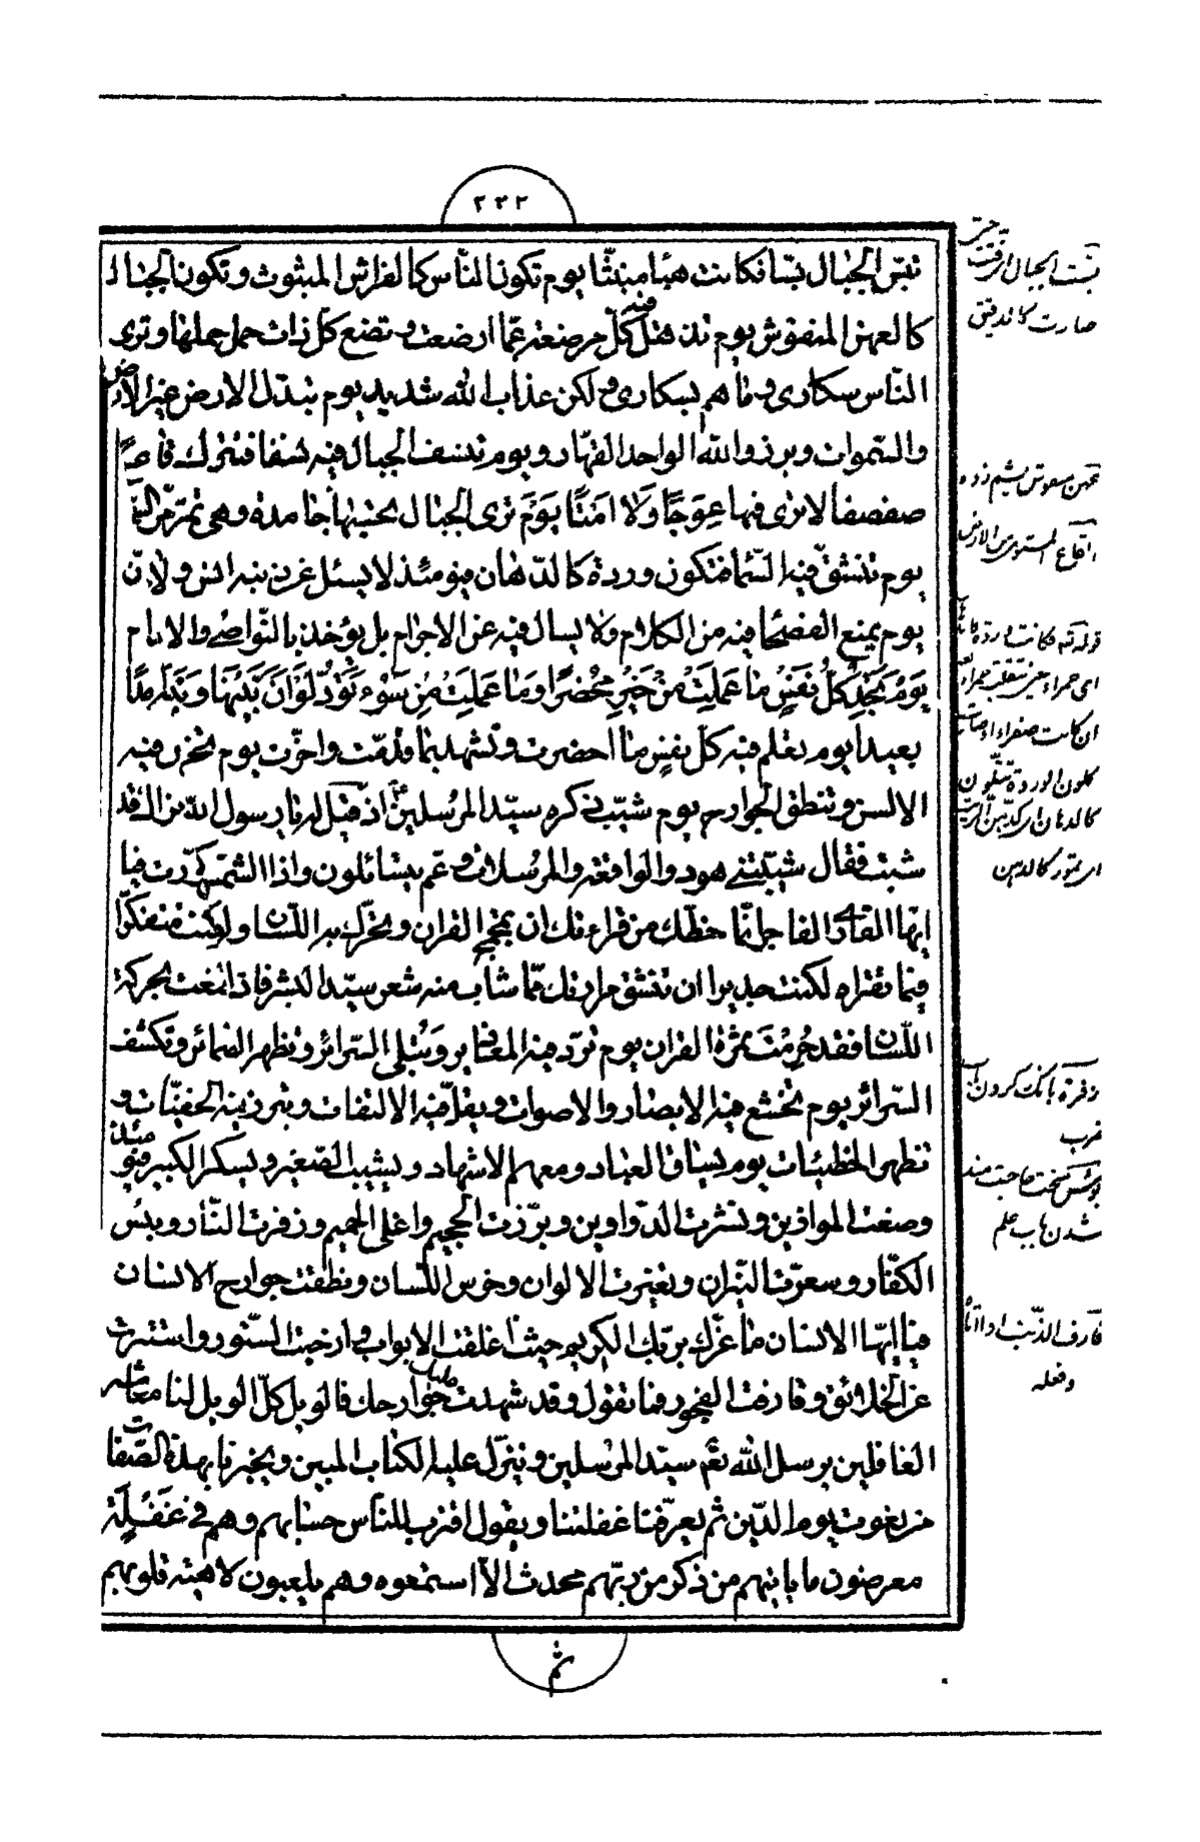 ٢٣٢
تبسّ الجبال بسّا فكانت هباء منبثّا يوم تكون الناس كالفراش المبثوث و تكون الجبال
كالعهن المنفوش يوم تذهل فيه كلّ مرضعة عمّا ارضعت و تضع كلّ ذات حمل حملها و ترى
النّاس سكارى و ما هم بسكارى و لكن عذاب الله شديد يوم تبدّل الارض غير الارض
والسّموات و برزوا لله الواحد القهّار و يوم تنسف الجبال فيه نسفا فتترك قاعًا
صفصفا لا ترى فيها عِوَجًا وَلا اَمتًا يَوْمَ ترى الجبال تحسبها جامدة و هى تمرّ مرّ السّحاب
يوم تنشقّ فيه السّماء فتكون وردة كالدّهان فيومئذ لا يسئل عن ذنبه انس و لا جانّ
يوم يمنع العصى فيه من الكلام و لا يسال فيه عن الاجرام بل يؤخذ بالنّواصى والاقدام
يَوْمَ تَجِدُ كلُّ نَفسٍ ما عَمِلَتْ مِنْ خَيرٍ مُحْضَرًا وَما عَمِلَتْ مِن سُوْءٍ تَوَدُّ لَوْ اَنَّ بَيْنَهَا وَ بَيْنَهُ اَمَدًا
بعيدا يوم تعلم فيه كلّ نفس ما احضرت و تشهد بما قدّمت و اخّرت يوم تخرس فيه
الالسن و تنطق الجوارح يوم شيّب ذكره سيّد المرسلين اذ قيل له يا رسول الله نراك قد
شبت فقال شيّبتنى هود و الواقعة و المرسلات و عمّ يتسائلون و اذا الشمس كوّرت فيا
ايّها القارى العاجل انّما حظّك من قرائتك ان تمجمج القران و تحرّك به اللّسان و لو كنت متفكّرا
فيما تقراه لكنت جديرا ان تنشقّ مرارتك ممّا شاب منه شعر سيّد البشر فاذا قنعت بحركة
اللّسان فقد حُرِمْتَ ثمرة القران يوم تردّ فيه المعاذير وَتُبلى السّرائر و تظهر الضمائر و تكشف
السّرائر يوم تخشع فيه الابصار و الاصوات و يقلّ فيه الالتفات و تبرز فيه الخفيّات و
تظهر الخطيئات يوم يساق العباد و معهم الاشهاد و يشيب الصّغير و يسكر الكبير فيومئذ
وضعت الموازين و نشرت الدّواوين و برّزت الجحيم و اغلى الحميم و زفرت النّار و يئس
الكفّار و سعّرت النّيران و تغيّرت الالوان و خرس اللّسان و نطقت جوارح الانسان
فيا ايّها الانسان ما غرّك بربّك الكريم حيث اغلقت الابواب و ارخيت السّتور و استترت
عن الخلائق و قارفت الفجور فما تقول و قد شهدت عليك جوارحك فالويل كلّ الويل لنا معاشر
الغافلين يرسل الله تعم سيّد المرسلين و ينزّل عليه الكتاب المبين و يخبرنا بهذه الصّفات
من نعوت يوم الدّين ثم يعرّفنا غفلتنا و يقول اقترب للنّاس حسابهم و هم فى غَفلَةٍ
معرضون ما ياتيهم من ذكر من ربّهم محدث الاّ استمعوه و هم يلعبون لاهية قلوبهم
ثم
بسّت الجبال اى فتّت حتّى
صارت كالدقيق
عهن منفوش پشم زده
القاع المستوى من الارض
قوله تعه فكانت وردة كالدهان
اى حمراء
ان كانت صفراء
كلون الوردة يتلون
كالدهان
اى تمور كالدهن
زفرة بانگ كردن
ضرب
بؤس سخت حاجت مند
شدن باب علم
قارف الذنب اذا اتاه
و فعله